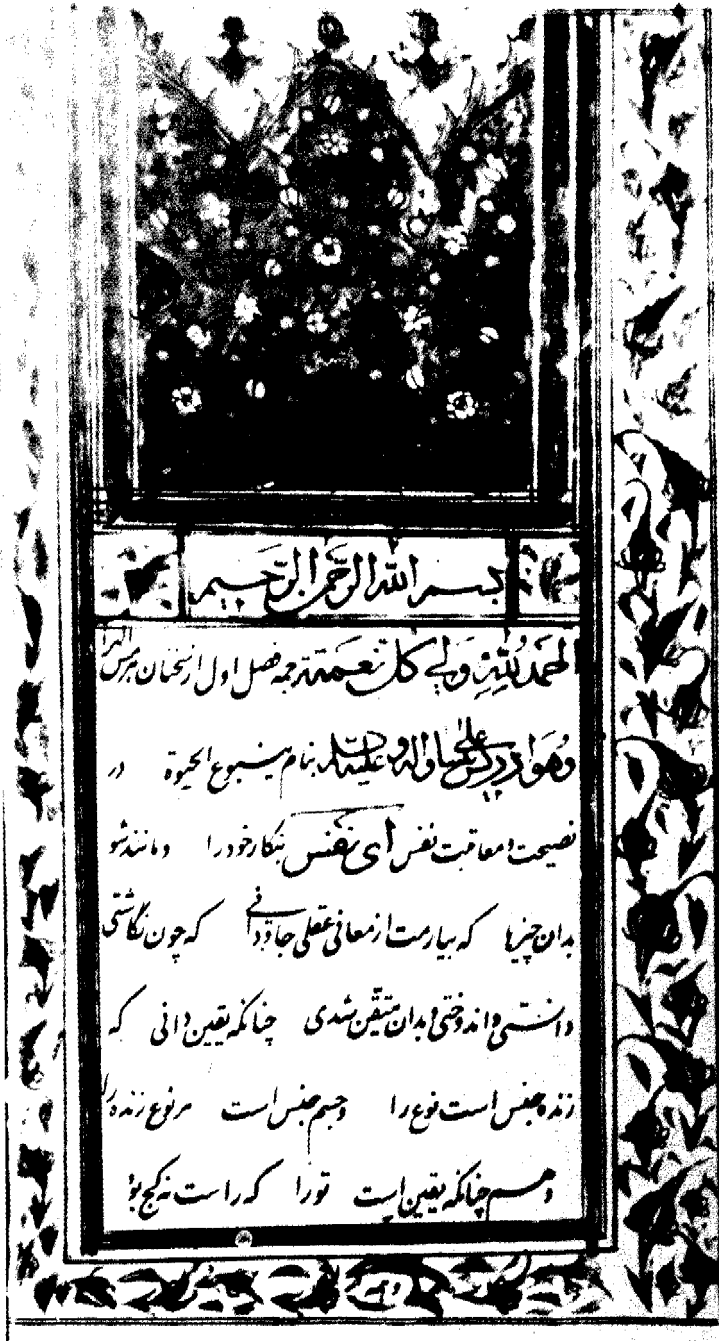 بسم الله الرحمن الرحیم
الحمد لله ولی کل نعمة ترجمه فصل اول از سخنان هرمس الهرامسه
وهو ادریس علی نبینا و اله و علیه السلام بنام ینبوع الحیوة در
نصیحت و معاقبت نفس ای نفس بنکار خود را و مانند شو
بدان چیزها که بیارمت از معانی عقلی جاودانی که چون نگاشتی
دانستی و اندوختی و بدان متیقن شدی چنانکه یقین دانی که
زنده جنس است نوع را و جسم جنس است مر نوع زنده را
و هم چنانکه یقین است تو را که راست نه کج بود